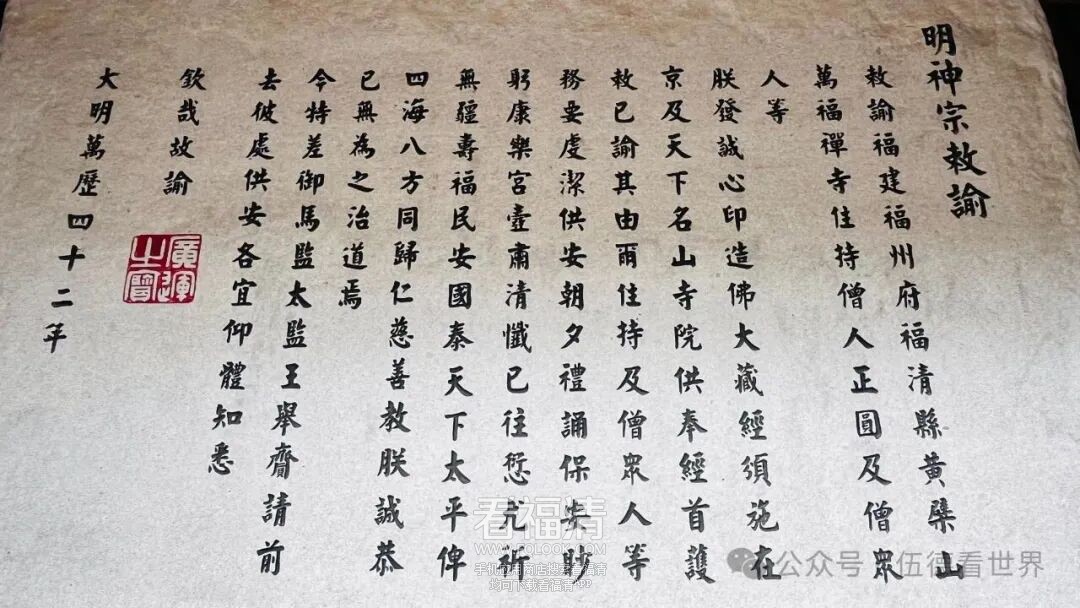 明神宗敕諭
敕諭福建福州府福清縣黃檗山
萬福禪寺住持僧人正圓及僧眾
人等
朕發誠心印造佛大藏經須施在
京及天下名山寺院供奉經首護
敕已諭其由爾住持及僧眾人等
務要虔潔供安朝夕禮誦保安眇
躬康樂宮壼肅清懺已往愆尤祈
無疆壽福民安國泰天下太平俾
四海八方同歸仁慈善教朕誠恭
已無為之治道焉
今特差御馬監太監王舉齎請前
去彼處供安各宜仰體知悉
欽哉故諭
大明萬歷四十二年
廣運之寶
看福清
WWW.FQLOOK.COM
均可下载看福清APP
公众号 伍 看世界